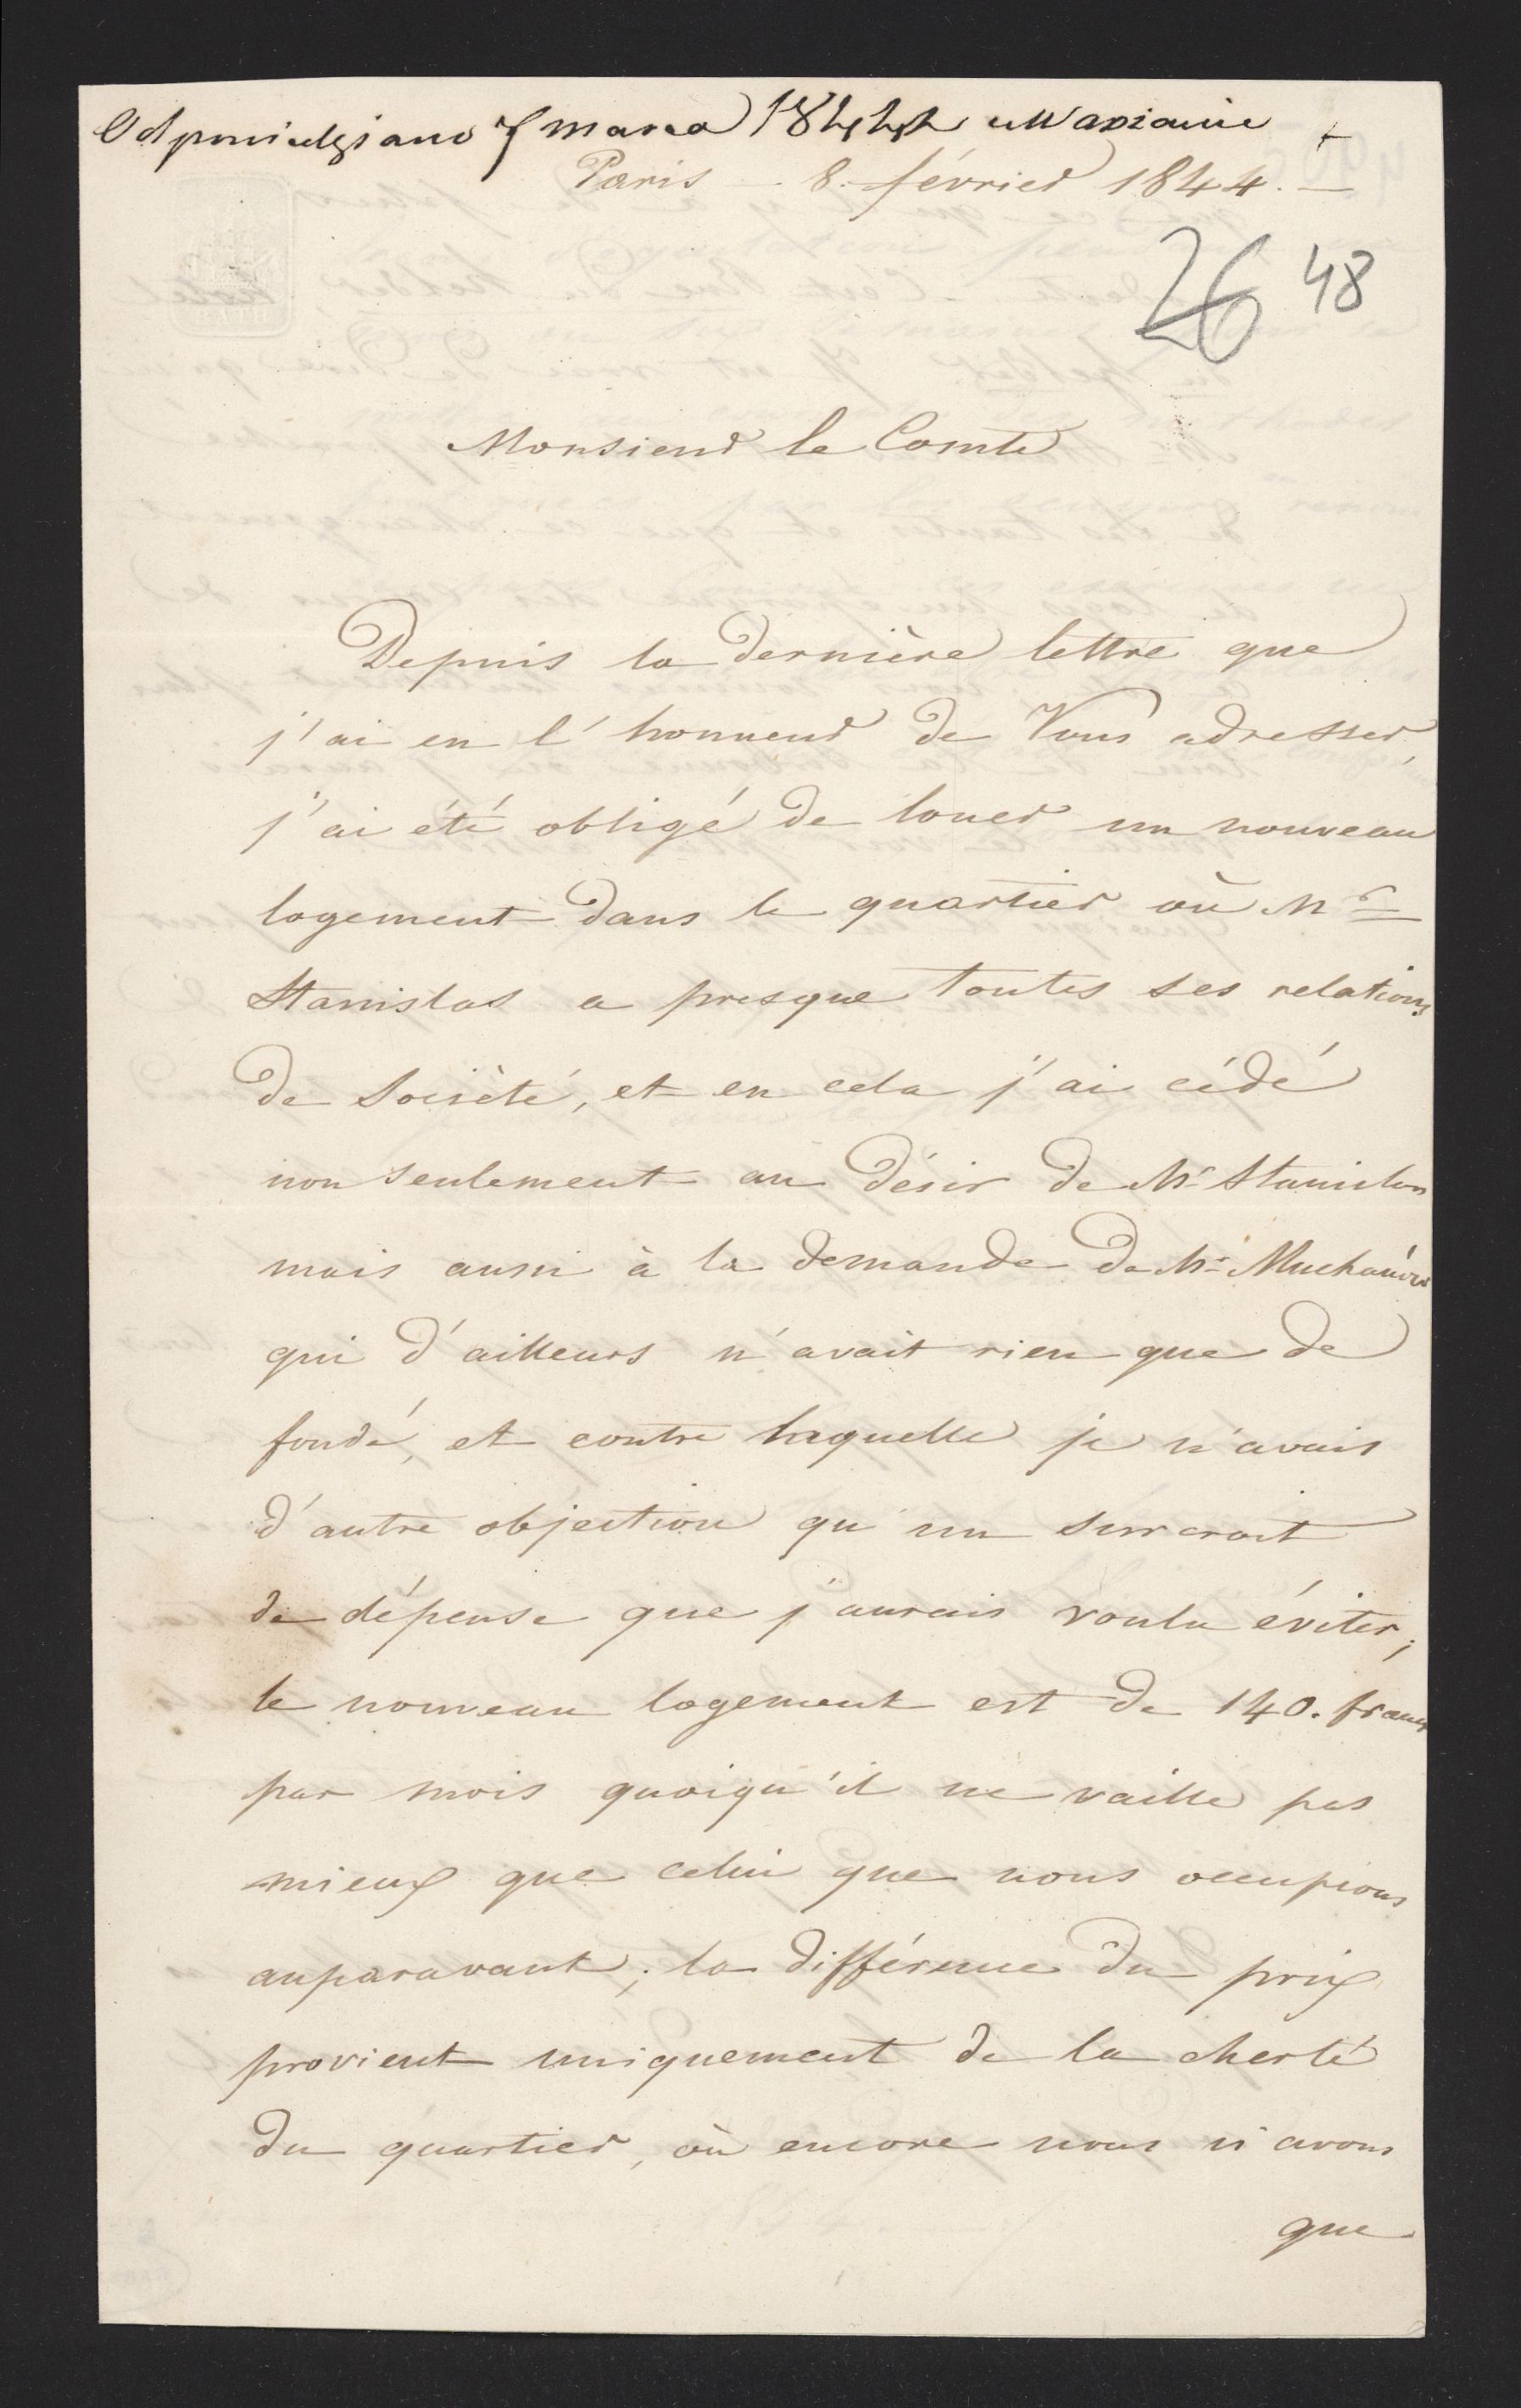 Odpowiedziano 7 marca 1844 w Warszawie
Paris - 8. février 1844. -
26 48
Monsieur le Comte
Depuis la dernière lettre que
j'ai eu l'honneur de Vous adresser,
j'ai été obligé de louer un nouveau
logement dans le quartier où Mr
Stanislas a presque toutes ses relations
de Société, et en cela j'ai cédé
non seulement au désir de Mr Stanislas
mais aussi à la demande de Mr
qui d'ailleurs n'avait rien que de
fondé, et contre laquelle je n'avais
d'autre objection qu'un surcroit
de dépense que j'aurais voulu éviter;
le nouveau logement est de 140. francs
par mois quoiqu'il ne vaille pas
mieux que celui que nous occupions
auparavant; la différence du prix
provient uniquement de la cherté
du quartier, où encore nous n'avons
que